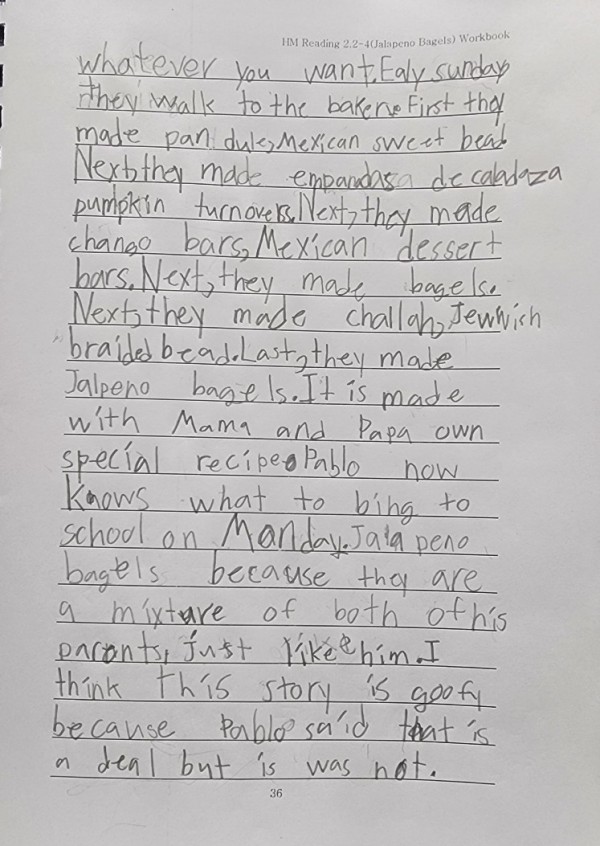 HM Reading 2.2-4(Jalapeno Bagels) Workbook
whatever you want.Ealy sunday
they walk to the bakere.First they
made pan dule,Mexican sweet bead
Next,they made empandasa de caladaza
pumpkin turnovers.Next,they made
chango bars,Mexican dessert
bars.Next,they made bagels.
Next,they made challah,Jewwish
braided bead.Last,they made
Jalpeno bagels.It is made
with Mama and Papa own
special recipe.Pablo now
knows what to bing to
school on Manday.Jala peno
bagels because they are
a mixture of both of his
parents, just like him.I
think this story is goofy
because Pablo said that is
a deal but is was not.
36